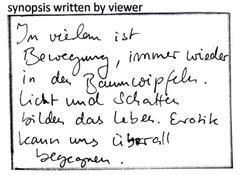 synopsis written by viewer
In vielem ist
Bewegung, immer wieder
in den Baumwipfeln.
Licht und Schatten
bilden das Leben. Erotik
kann uns überall
begegnen.